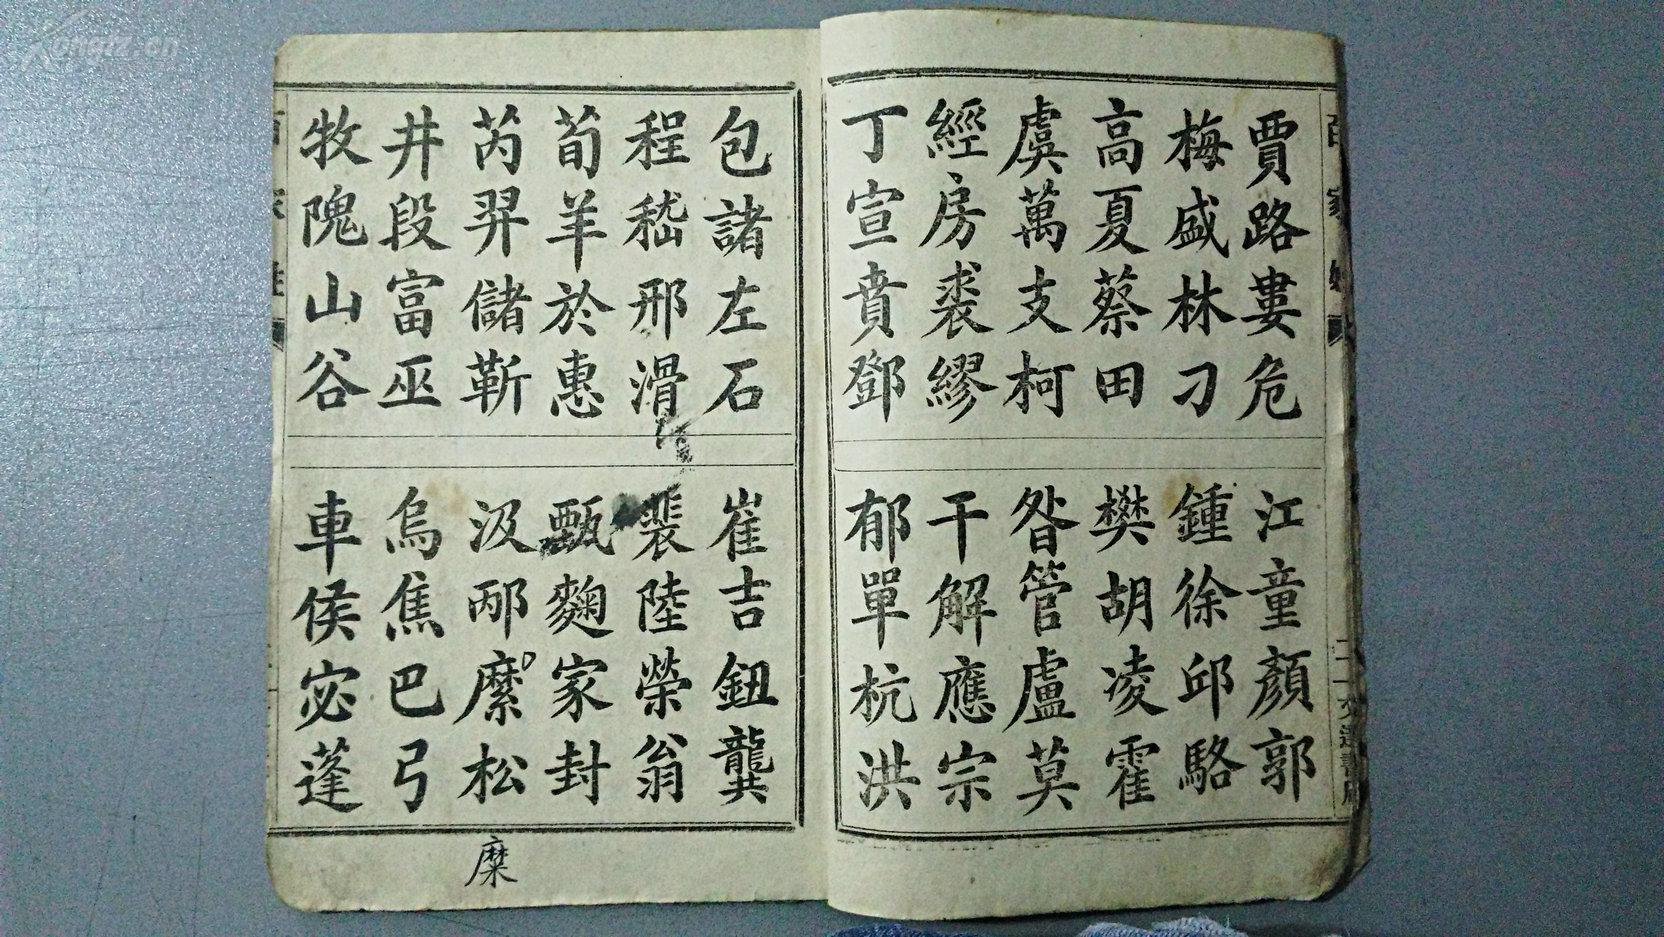 賈路婁危
江童顏郭
梅盛林刁
鍾徐邱駱
高夏蔡田
樊胡凌霍
虞萬支柯
昝管盧莫
經房裘繆
干解應宗
丁宣賁鄧
郁單杭洪
包諸左石
崔吉鈕龔
程嵇邢滑
裴陸榮翁
荀羊於惠
甄麴家封
芮羿儲靳
汲邴縻松
井段富巫
烏焦巴弓
牧隗山谷
車侯宓蓬
糜
百家姓
Kongfz.cn